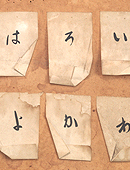 いろは
わかよ